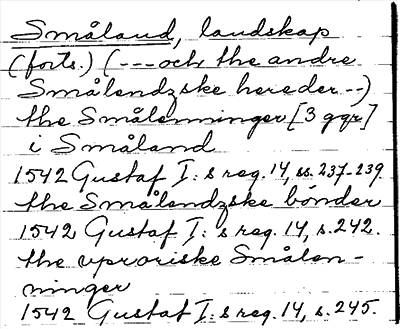 Småland, landskap
(forts.) (--- och the andre
Smålendzske hereder --)
the Smålenninger [3 ggr]
i Småland
1542 Gustaf I:s reg. 14, ss. 237-239
the Smålendzske bönder
1542 Gustaf I:s reg. 14, s. 242.
the uproriske Smålen-
ninger
1542 Gustaf I:s reg. 14, s. 245.